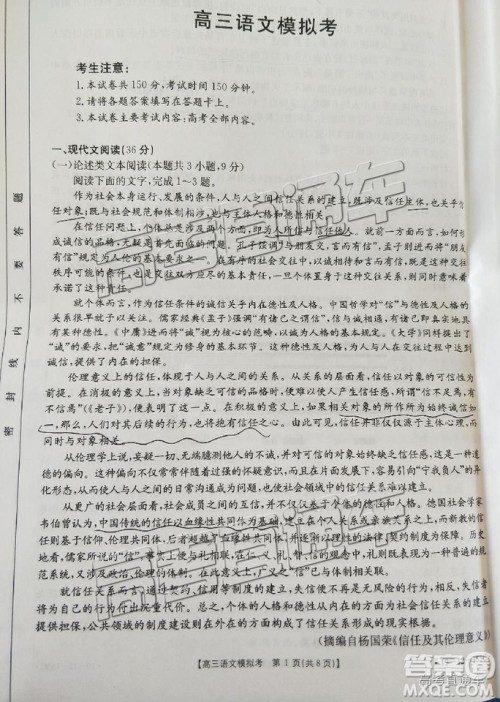 高三语文模拟考
考生注意:
1.本试卷共150分,考试时间150分钟。
2.请将各题答案填写在答题卡上。
3.本试卷主要考试内容:高考全部内容。
一、现代文阅读(36分)
(一)论述类文本阅读(本题共3小题,9分)
阅读下面的文字,完成1~3题。
作为社会本身运行、发展的条件,人与人之间信任关系的建立,既涉及信任主体,也关乎信
任对象;既与社会规范和体制相涉,也与主体人格和德性相关。
在信任问题上,个体总是涉及两个方面,即为人所信与信任他人。就前一方面而言,如何形
成诚信的品格,无疑是首先面临的问题。孔子强调“与朋友交,言而有信”,孟子则进而将“朋友
有信”规定为人伦的基本要求之一。在有序的社会交往中,以诚相待和言而有信,既是这种交往
秩序可能的条件,也是交往双方应尽的基本责任,一旦个体置身于这种交往关系,则同时意味着
承诺了这种责任。
就个体而言,作为信任条件的诚信关乎内在德性及人格。中国哲学对“信”与德性及人格的
关系很早就予以关注。儒家经典《孟子》强调“有诸己之谓信”,信与诚相通,有诸己即真实地具
有某种德性。《中庸》进而将“诚”视为核心的范畴,以诚为人格的基本规定。《大学》同样提出了
“诚”的要求,把“诚意”规定为修身的基本环节。这种真诚的德性、人格,为人与人在交往过程中达到
诚信,提供了内在的担保。
伦理意义上的信任,体现于人与人之间的关系。从关系的层面看,信任与对象的可信性为
前提。在消极的意义上,当对象缺乏可信的品格时,便很难使人产生信任感,所谓“信不足焉,有
不信焉”(《老子》),便表明了这一点。在积极的意义上,如果相关对象的所作所为始终诚信如
一,那么,人们对其后续的行为,也将抱有信任之心。由此可见,信任并非仅仅源于主体心理,而
同时与对象相关。
从伦理学上说,妄疑一切、无端臆测他人的不诚,并对可信的对象始终缺乏信任感,这是一种道
德的偏向。这一类个体往往执着过强的怀疑意识,而且在片面发展下,容易引向“宁我负人”的异
化形式,从而使人与人之间的日常沟通成为问题,也使诚信和信任关系难以建立。
从更广的社会层面看,信任关系的建立,不仅仅基于个体的德性和人格。德国社会学家
韦伯曾认为,中国传统的信任以血缘性共同体为基础,建立在个人关系或亲族关系之上,而新教的信任
则基于信仰、伦理共同体,后者超越了血缘性共同体,并逐渐以理性的法律、契约制度为保证。历
史地看,儒家所说的“信”,事实上便与礼相联,在仁、义、礼、智、信的观念中,礼则表现为一种普遍的规
范系统,又涉及政治、伦理的体制。在此意义上,广义之“信”已与体制相关联。
就信任关系而言,通过契约、信用等制度的建立,失信便不再是无风险的行为,相反,失信者
将为自己的行为付出沉重代价。总之,个体的人格和德性从内在的方面为社会信任关系的建立
提供担保,公共领域的制度建设则在外在的方面构成了信任关系形成的现实根据。
(摘编自杨国荣《信任及其伦理意义》)
【高三语文模拟考 第1页(共8页)】
密封线内不要答题
高考直通车